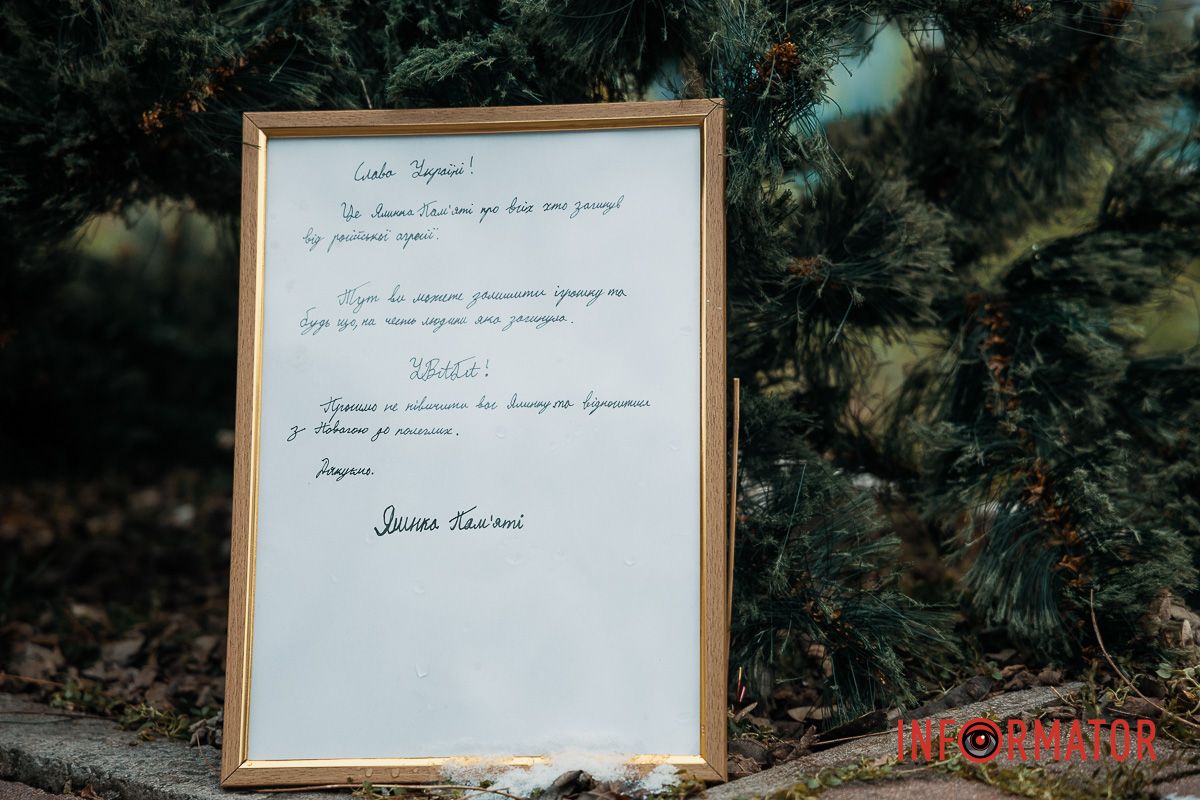 Слава Україні!
Це Ялинка Пам'яті про всіх хто загинув
від російської агресії.
Тут ви можете залишити іграшку та
будь що, на честь людини яка загинула.
УВАГА!
Просимо не нівичити вас Ялинку та відноситися
з Повагою до полеглих.
Дякуємо.
Ялинка Пам'яті
INFORMATOR